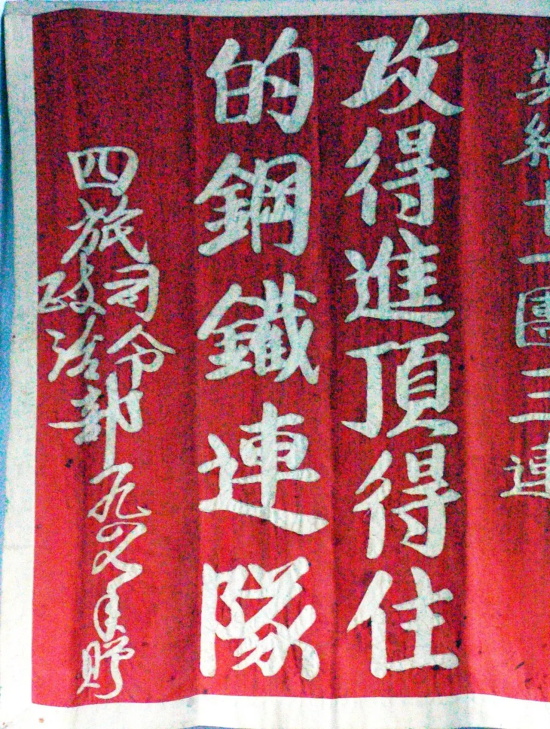 給十一團三連
攻得進頂得住
的鋼鐵連隊
四旅司令
政治部